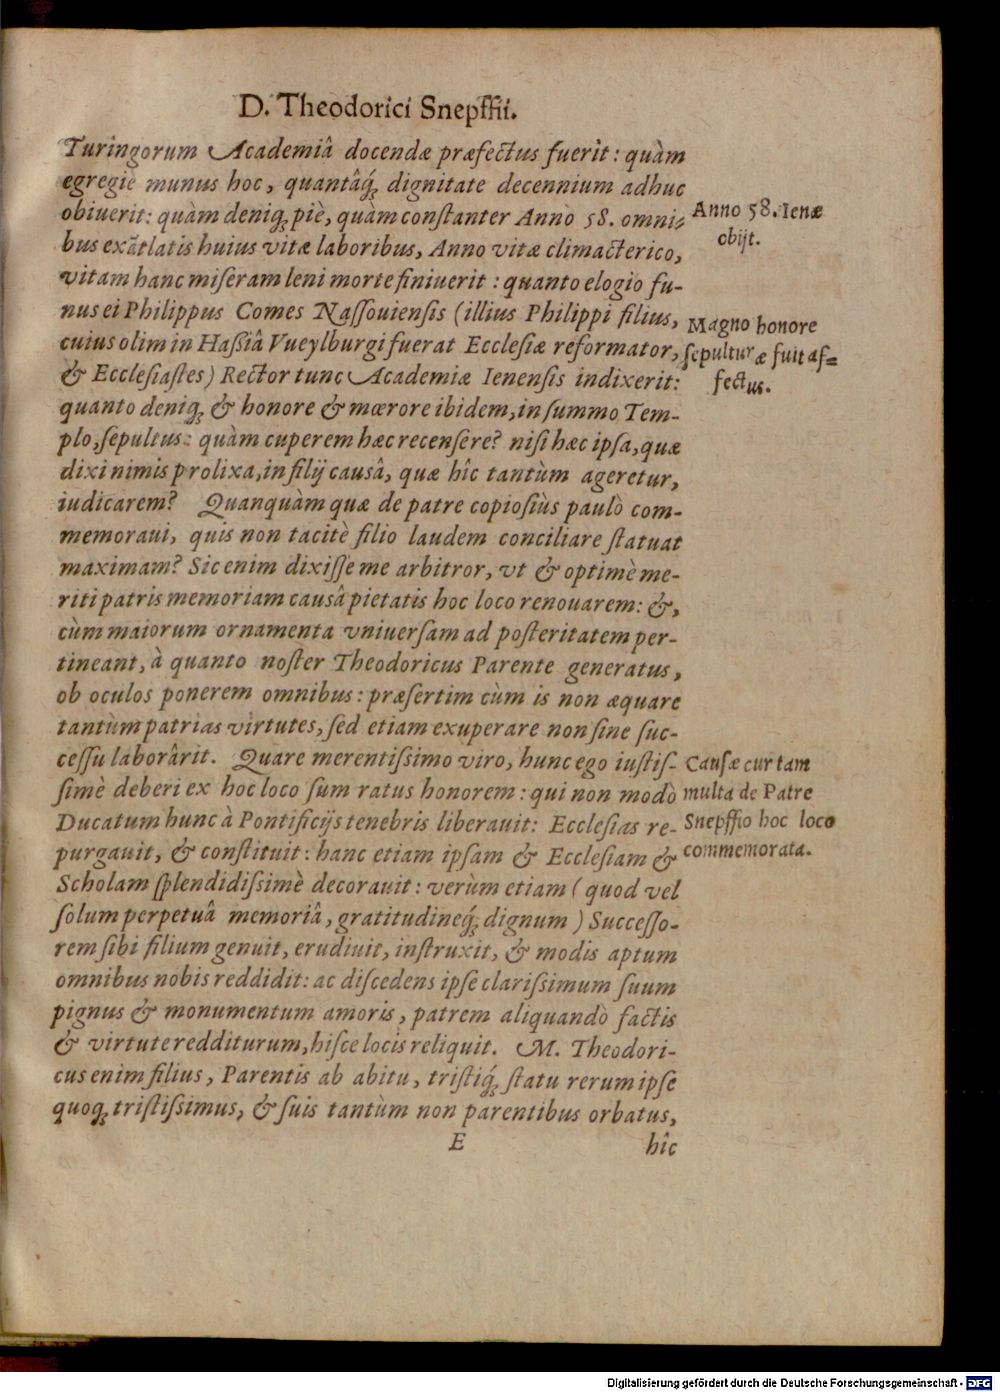 D. Theodorici Snepffii.
Turingorum Academiâ docendæ præfectus fuerit: quàm
egregiè munus hoc, quantâq́; dignitate decennium adhuc
obiuerit: quàm deniq; piè, quàm constanter Anno 58. omni-
bus exãtlatis huius vitæ laboribus, Anno vitæ climacterico,
vitam hanc miseram leni morte finiuerit: quanto elogio fu-
nus ei Philippus Comes Nassouiensis (illius Philippi filius,
cuius olim in Haßiâ Vueylburgi fuerat Ecclesiæ reformator,
& Ecclesiastes) Rector tunc Academiæ Ienensis indixerit:
quanto deniq; & honore & mœrore ibidem, in summo Tem-
plo, sepultus: quàm cuperem hæc recensere? nisi hæc ipsa, quæ
dixi nimis prolixa, in filij causâ, quæ hîc tantùm ageretur,
iudicarem? Quanquàm quæ de patre copiosiùs paulò com-
memoraui, quis non tacitè filio laudem conciliare statuat
maximam? Sic enim dixisse me arbitror, vt & optimè me-
riti patris memoriam causâ pietatis hoc loco renouarem: &,
cùm maiorum ornamenta vniuersam ad posteritatem per-
tineant, à quanto noster Theodoricus Parente generatus,
ob oculos ponerem omnibus: præsertim cùm is non æquare
tantùm patrias virtutes, sed etiam exuperare non sine suc-
cessu laborârit. Quare merentissimo viro, hunc ego iustis-
simè deberi ex hoc loco sum ratus honorem: qui non modò
Ducatum hunc à Pontificijs tenebris liberauit: Ecclesias re-
purgauit, & constituit: hanc etiam ipsam & Ecclesiam &
Scholam splendidissimè decorauit: verùm etiam (quod vel
solum perpetuâ memoriâ, gratitudineq́; dignum) Successo-
rem sibi filium genuit, erudiuit, instruxit, & modis aptum
omnibus nobis reddidit: ac discedens ipse clarissimum suum
pignus & monumentum amoris, patrem aliquandò factis
& virtute redditurum, hisce locis reliquit. M. Theodori-
cus enim filius, Parentis ab abitu, tristiq́; statu rerum ipse
quoq; tristissimus, & suis tantùm non parentibus orbatus,
E
hîc
Anno 58. Ienæ
obijt.
Magno honore
sepulturæ fuit af-
fectus.
Causæ cur tam
multa de Patre
Snepffio hoc loco
commemorata.
Digitalisierung gefördert durch die Deutsche Forschungsgemeinschaft - DFG